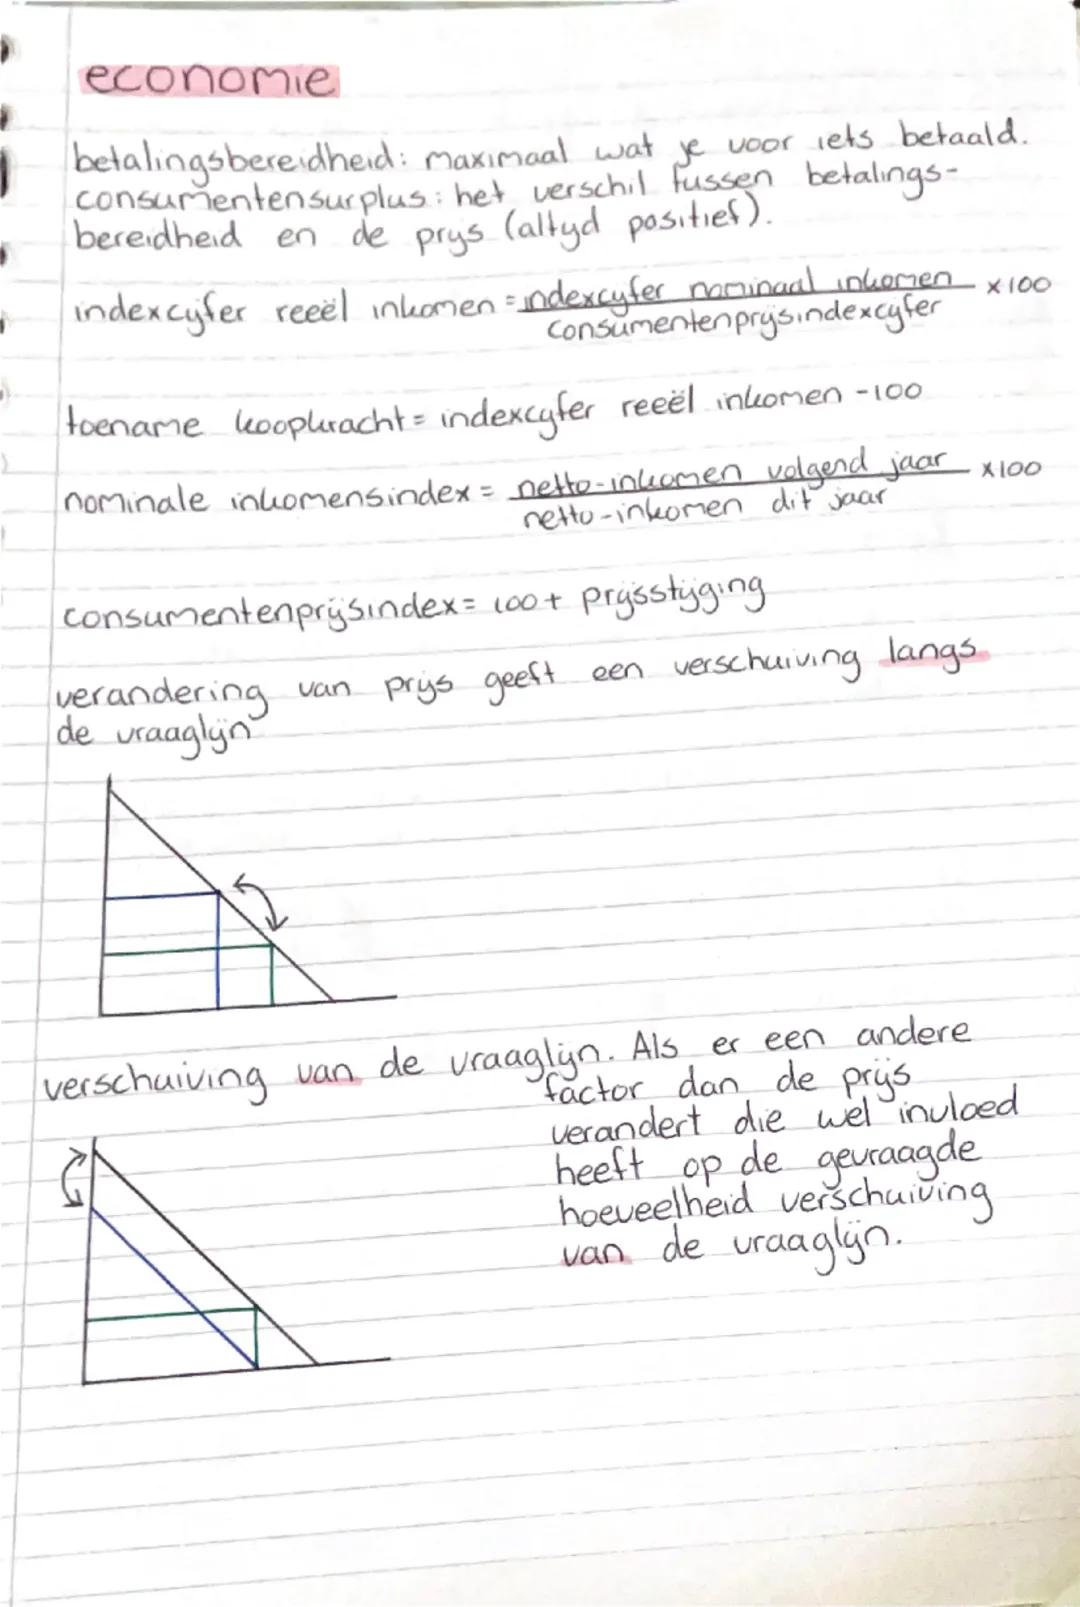 economie
betalingsbereidheid: maximaal wat je voor iets betaald.
consumentensurplus: het verschil tussen betalings-
bereidheid en de prijs (altijd positief).
indexcijfer reeël inkomen = indexcijfer nominaal inkomen x100
consumentenprijsindexcijfer
toename koopkracht = indexcijfer reeël inkomen -100
nominale inkomensindex = netto-inkomen volgend jaar x100
netto-inkomen dit jaar
consumentenprijsindex = 100+ prijsstijging
verandering van prijs geeft een verschuiving langs
de vraaglijn
verschuiving van de vraaglijn. Als er een andere
factor dan de prijs
verandert die wel invloed
heeft op de gevraagde
hoeveelheid verschuiving
van de vraaglijn.